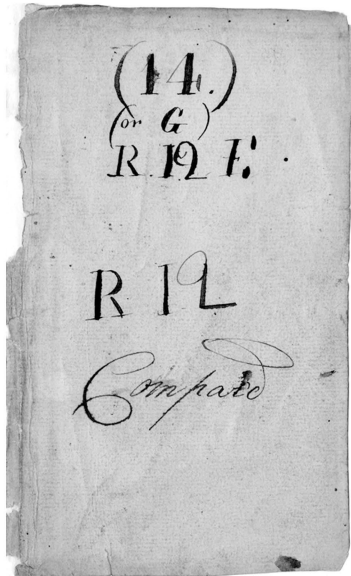 (14.)
(or G)
R 12 F.
R 12
Compared